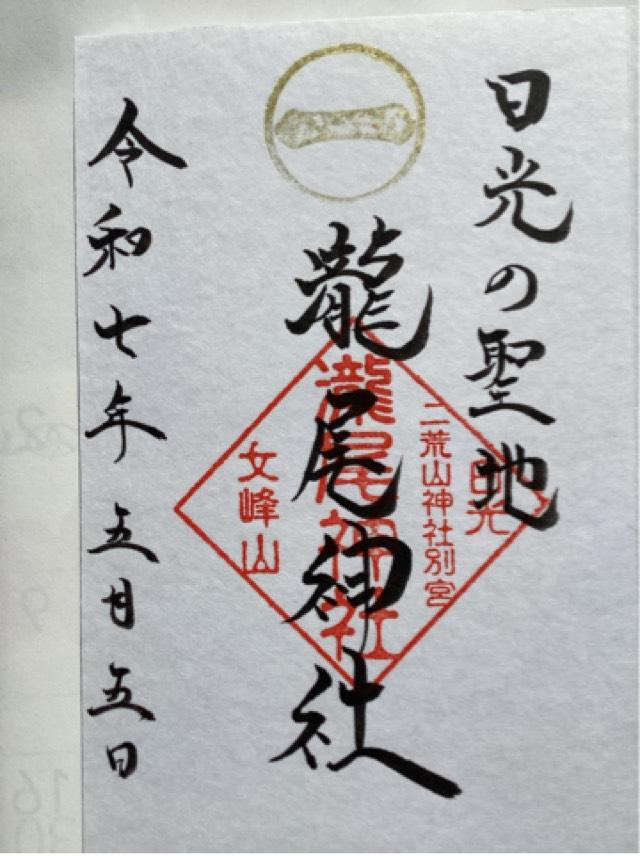 日光の聖地
瀧尾神社
令和七年五月五日
日光
二荒山神社別宮
瀧尾神社
女峰山